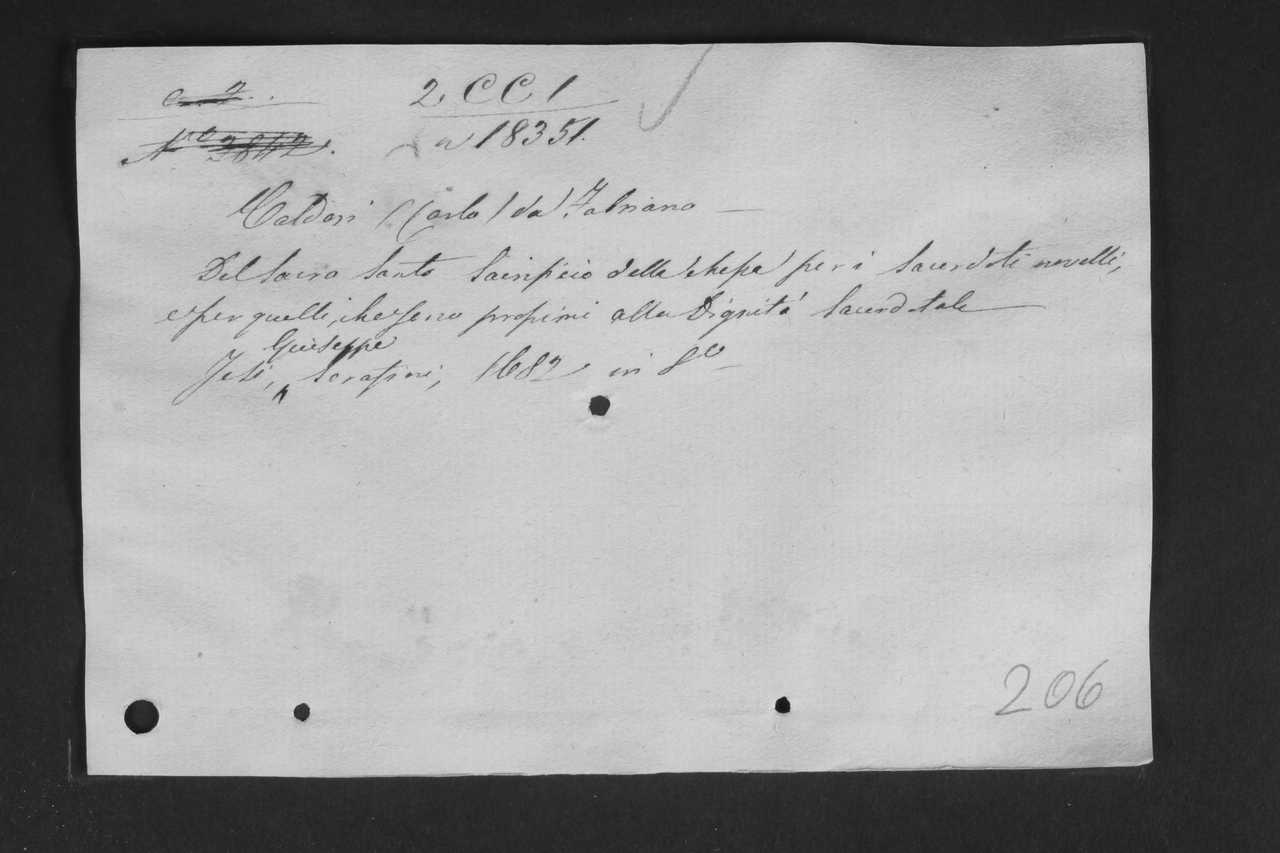 c. 2. 2 CC 1
No 3862. n 18351.
Caldori (Carlo) da Fabriano —
Del Sacro Santo Sacrificio della Messa per i Sacerdoti novelli,
e per quelli, che sono prossimi alla Dignità Sacerdotale —
Giuseppe
Jesi, ^ Serafini, 1682 in 8o —
206